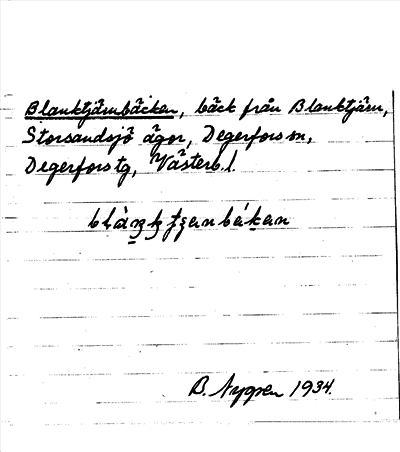 Blanktjärnbäcken, bäck från Blanktjärn,
Storsandsjö ägor, Degerfors sn,
Degerfors tg, Västerb. l.
B. Nygren 1934.